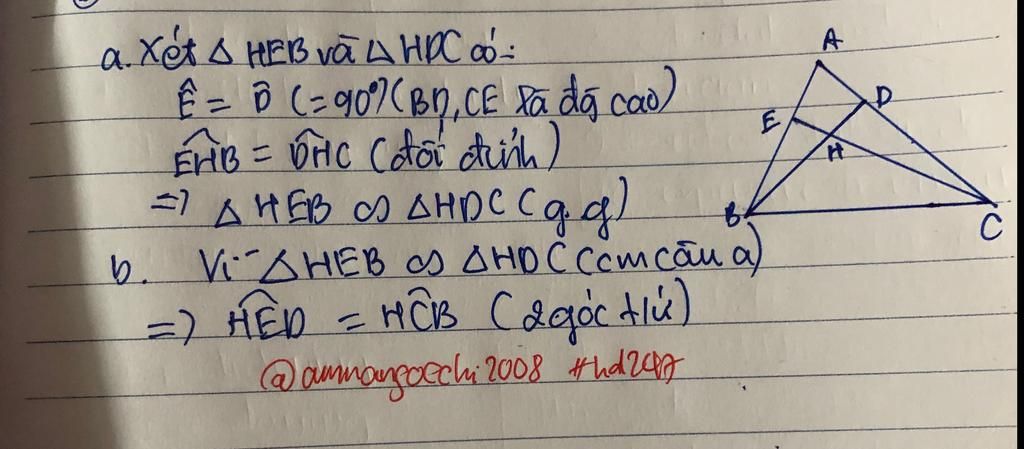 a. Xét △ HEB và △ HDC có:
Ê = D̂ (=90°) (BD, CE là đg cao)
EHB = DHC (đối đỉnh)
=> △ HEB ∽ △HDC (g.g)
b. Vì △HEB ∽ △HDC (cm câu a)
=> HED = HCB (2 góc t/ứ)
#hd247
A
E
D
H
B
C